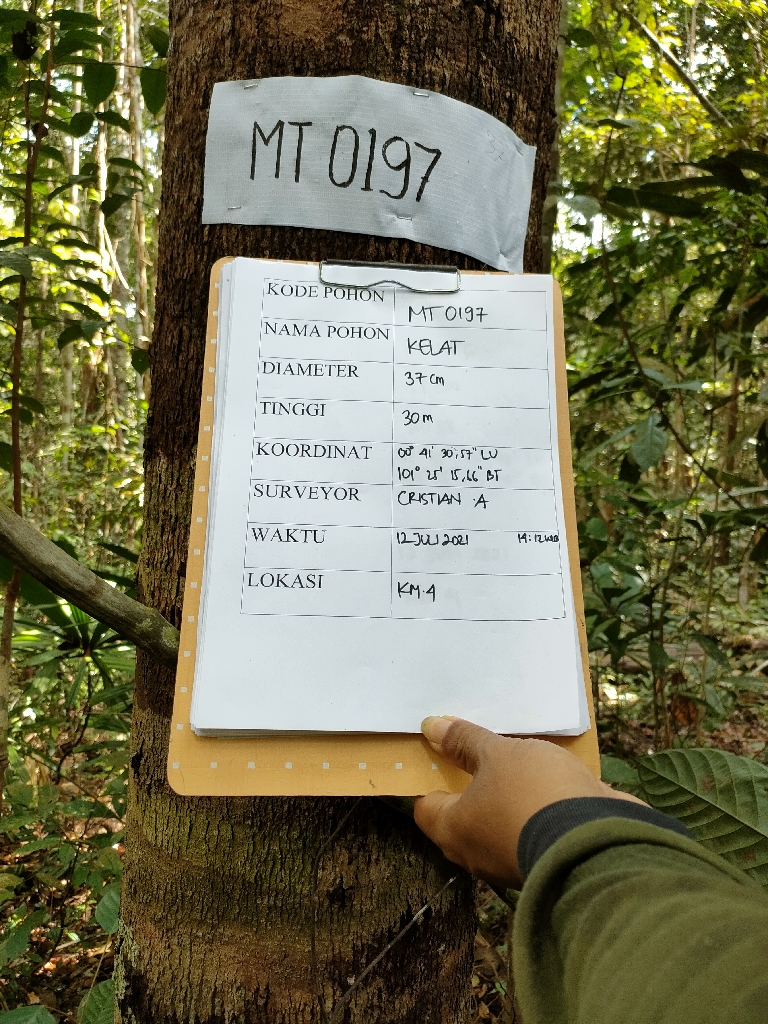 MT 0197
KODE POHON MT 0197
NAMA POHON KELAT
DIAMETER 37 cm
TINGGI 30 m
KOORDINAT 00° 41' 30,57" LU
101° 25' 15,66" BT
SURVEYOR CRISTIAN .A
WAKTU 12 JULI 2021 14:12 WIB
LOKASI KM.4